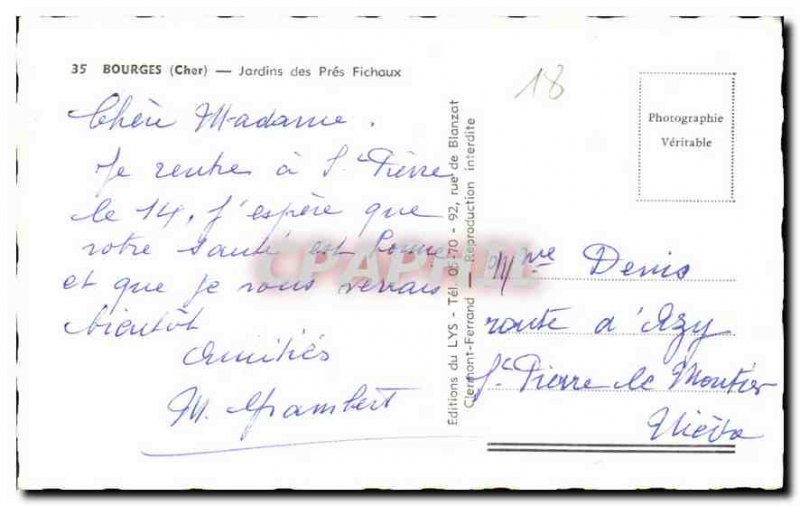 35 BOURGES (Cher) — Jardins des Prés Fichaux
Chère Madame.
Je rentre à St Pierre
le 14, j'espère que
votre santé est bonne
et que je vous verrais
bientôt
Amitiés
M.
Editions du LYS - Tél. 05-70 - 92, rue de Blanzat
Clermont-Ferrand — Reproduction interdite
18
Photographie
Véritable
Mme Denis
route d'Azy
St Pierre le Moutier
Nièvre
CPAPHIL